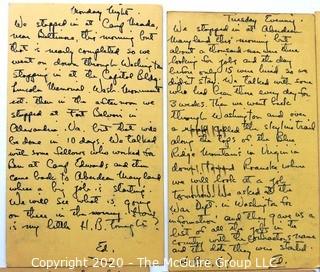 Monday Night.
We stopped in at Camp Meade,
near Baltimore, this morning but
that is nearly completed so we
went on down through Washington
stopping in at the Capitol Bldg.
Lincoln Memorial, Wash. Monument
ect. then in the afternoon we
stopped at Fort Belvoir in
Alexandria Va. but that will
be done in 10 days. We talked
with some fellows who worked for
Ben at Camp Edwards and then
came back to Aberdeen Maryland
where a big job is starting.
We will see what is going
on there in the morning.
is my little H.B.
Ed.
Tuesday Evening.
We stopped in at Aberdeen
Maryland this morning but
about a thousand men were there
looking for jobs and the day
before only 15 were hired so we
didn't stay. We talked to some who
had been there every day for
3 weeks. Then we went back
through Washington and over
a the skyline trail
along the tops of the Blue
Ridge Mountains in Virginia
down Roanoke where
we will look at a job
tomorrow. We asked at the
War Dept. in Washington for
information and they gave us a
list of all the jobs in the
with the contractors name
and the date they were started.
Ed.
Copyright 2020 - The Photography Parlor